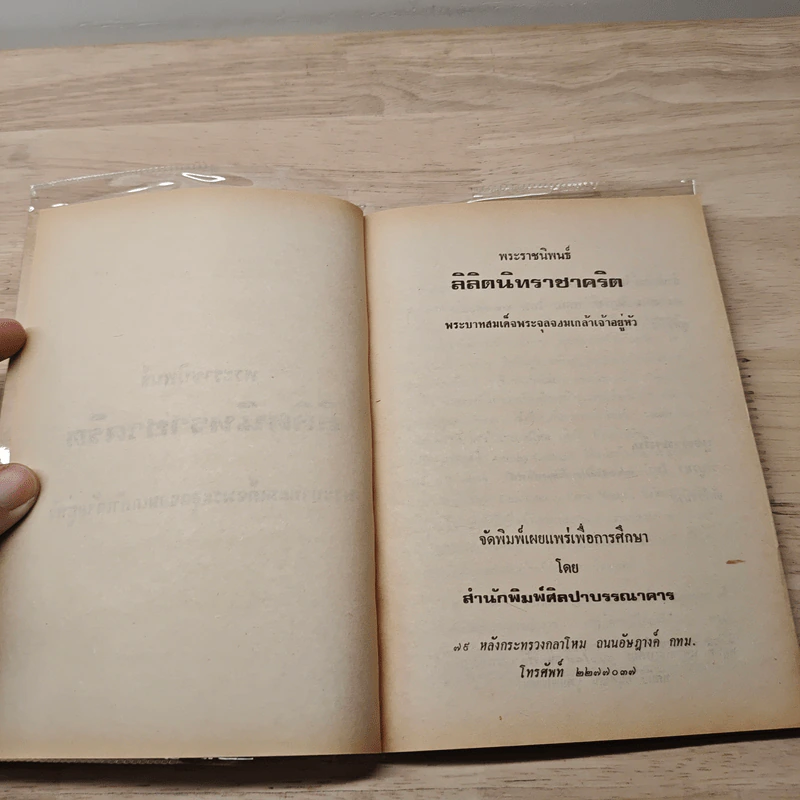 พระราชนิพนธ์
ลิลิตนิทราชาคริต
พระบาทสมเด็จพระจุลจอมเกล้าเจ้าอยู่หัว
จัดพิมพ์เผยแพร่เพื่อการศึกษา
โดย
สำนักพิมพ์ศิลปาบรรณาคาร
๗๙ หลังกระทรวงกลาโหม ถนนอัษฎางค์ กทม.
โทรศัพท์ ๒๒๗๗๐๓๗